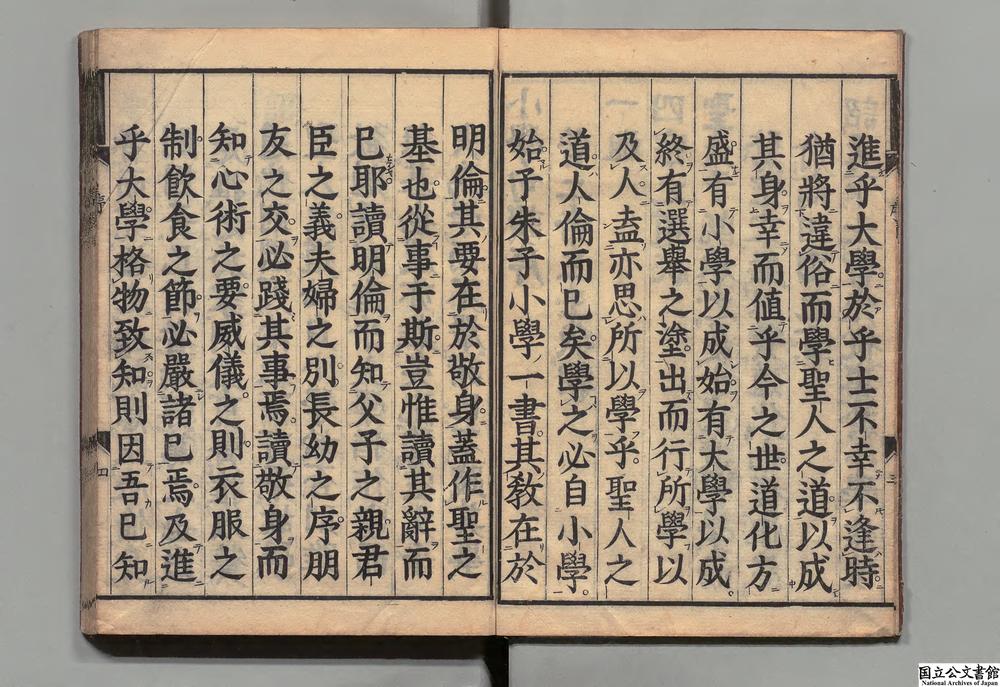 進乎大學於乎士不幸不逢時
猶將違俗而學聖人之道以成
其身幸而値乎今之世道化方
盛有小學以成始有大學以成
終有選舉之塗出而行所學以
及人盍亦思所以學乎聖人之
道人倫而已矣學之必自小學
始子朱子小學一書其敎在於
明倫其要在於敬身蓋作聖之
基也從事于斯豈惟讀其辭而
已耶讀明倫而知父子之親君
臣之義夫婦之別長幼之序朋
友之交必踐其事焉讀敬身而
知心術之要威儀之則衣服之
制飮食之節必嚴諸已焉及進
乎大學格物致知則因吾已知
序
三
序
四
国立公文書館
National Archives of Japan